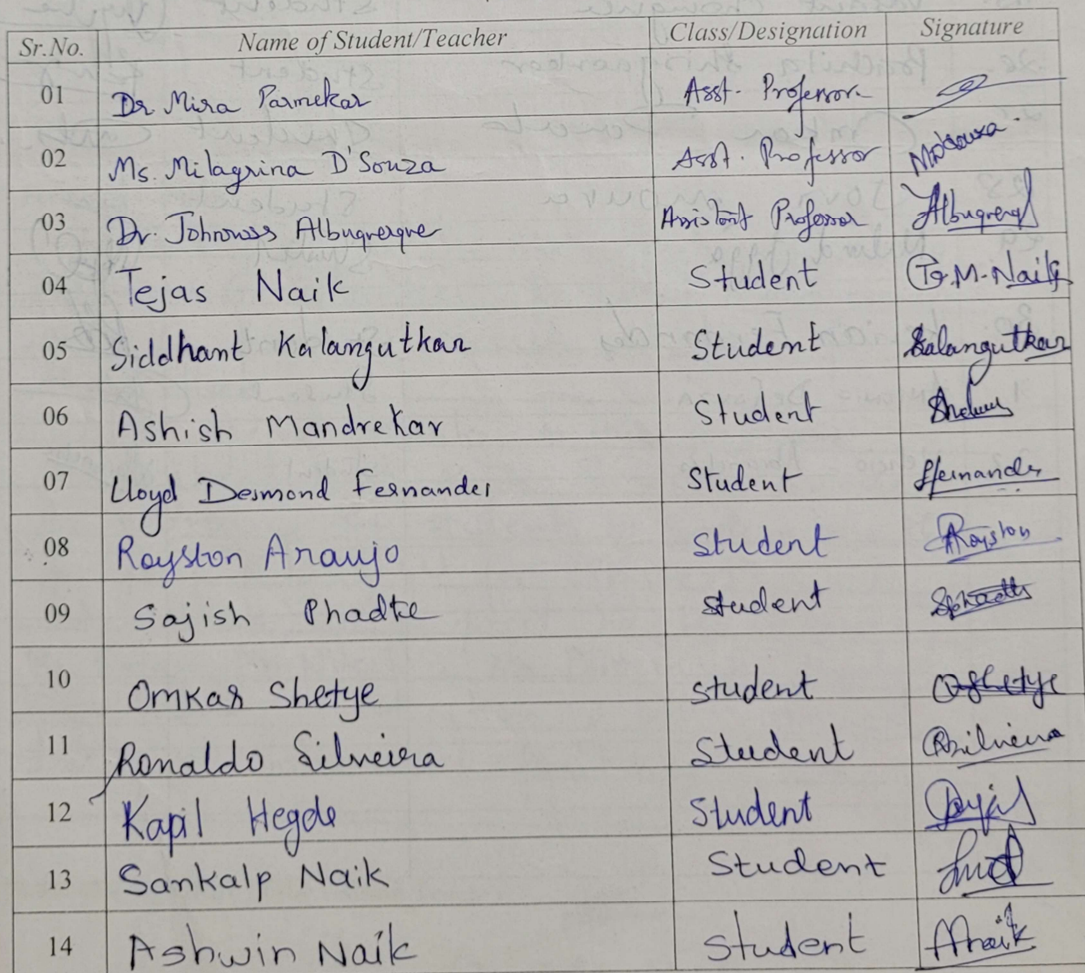 Sr.No. Name of Student/Teacher Class/Designation Signature
01 Dr Mira Parmekar Asst. Professor
02 Ms. Milagrina D'Souza Asst. Professor MDSouza.
03 Dr. Johnowss Albuquerque Assistant Professor Albuquerque
04 Tejas Naik Student T.G.M. Naik
05 Siddhant Kalangutkar Student Kalangutkar
06 Ashish Mandrekar Student
07 Lloyd Desmond Fernandes Student Lfernandes
08 Royston Araujo Student ARoyston
09 Sajish Phadte Student
10 Omkar Shetye Student OShetye
11 Ronaldo Silveira Student RSilveira
12 Kapil Hegde Student
13 Sankalp Naik Student
14 Ashwin Naik Student ANaik